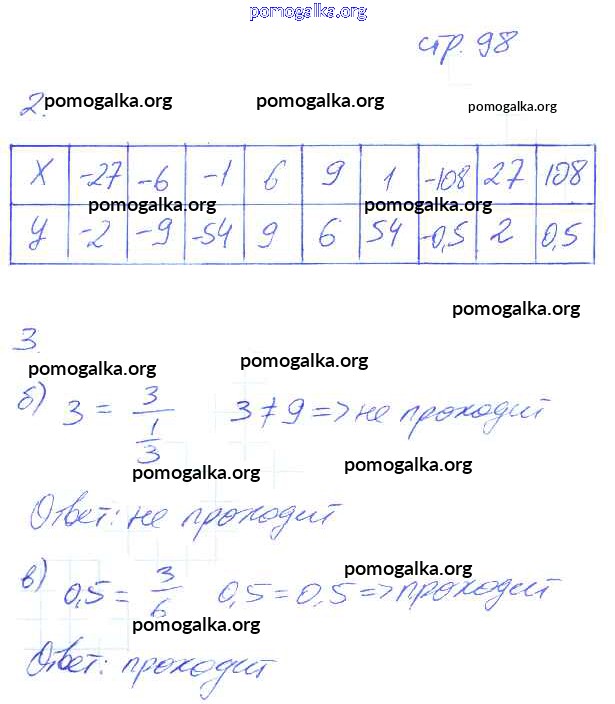 pomogalka.org
стр. 98
2. pomogalka.org pomogalka.org pomogalka.org
X -27 -6 -1 6 9 1 -108 27 108
pomogalka.org pomogalka.org
y -2 -9 -54 9 6 54 -0,5 2 0,5
pomogalka.org
3.
pomogalka.org pomogalka.org
б) 3 = 3/(1/3) 3 ≠ 9 => не проходит
pomogalka.org pomogalka.org
Ответ: не проходит
pomogalka.org
в) 0,5 = 3/6 0,5 = 0,5 => проходит
pomogalka.org
Ответ: проходит